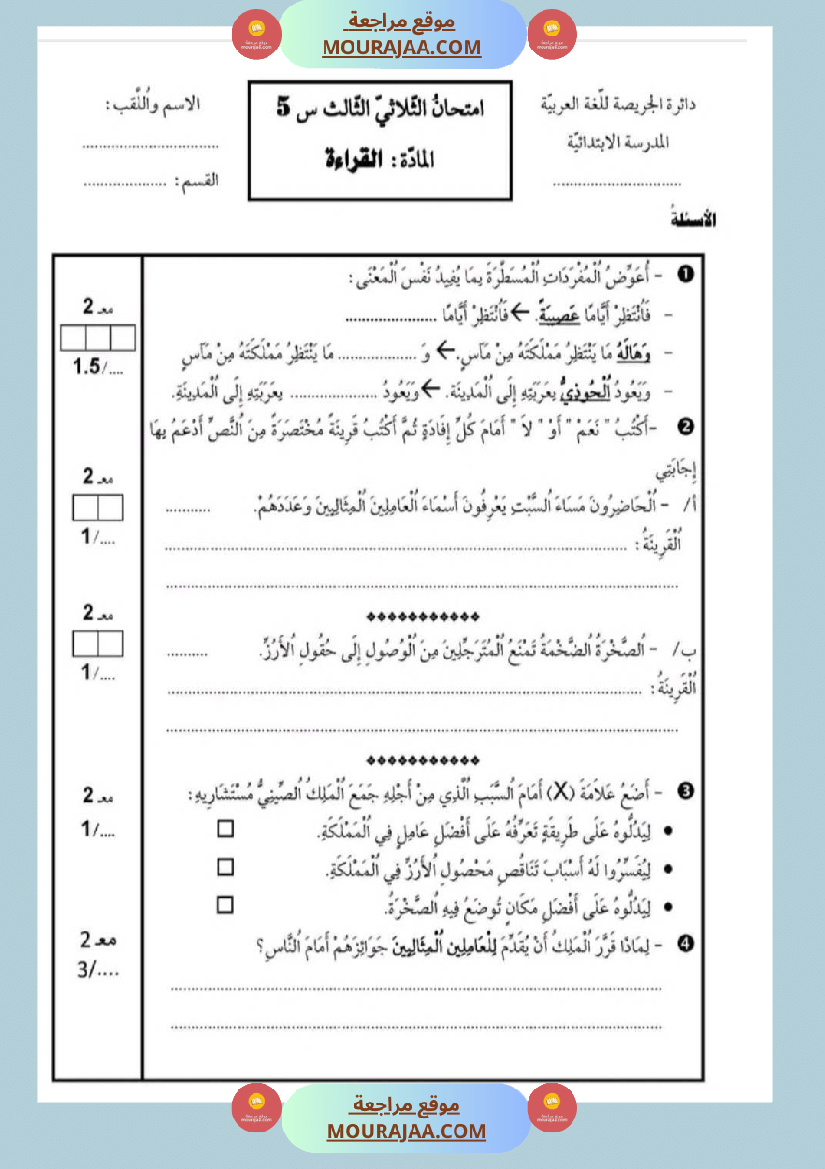 موقع مراجعة
MOURAJAA.COM
دائرة الجريصة للّغة العربيّة
المدرسة الابتدائيّة
..............................
امتحانُ الثّلاثيّ الثّالث س 5
المادّة: القراءة
الاسم واُللَّقب:
................................
القسم: ....................
الأسئلةُ
❶ - أُعَوِّضُ اُلْمُفْرَدَاتِ اِلْمُسَطَّرَةَ بِمَا يُفِيدُ نَفْسَ اَلْمَعْنَى:
- فَاُنْتَظِرْ أَيَّامًا عَصِيبَةً. ← فَاُنْتَظِرْ أَيَّامًا ......................
- وَهَالَهُ مَا يَنْتَظِرُ مَمْلَكَتَهُ مِنْ مَآسٍ. ← وَ ................... مَا يَنْتَظِرُ مَمْلَكَتَهُ مِنْ مَآسٍ
- وَيَعُودُ اُلْحُوذِيُّ بِعَرَبَتِهِ إِلَى اُلْمَدِينَة. ← وَيَعُودُ ..................... بِعَرَبَتِهِ إِلَى اَلْمَدِينَةِ.
معـ 2
1.5/....
❷ -أَكْتُبُ " نَعَمْ " أَوْ " لاَ " أَمَامَ كُلِّ إِفَادَةٍ ثُمَّ أَكْتُبُ قَرِينَةً مُخْتَصَرَةً مِنَ اُلنَّصِّ أَدْعَمُ بِهَا
إِجَابَتِي
أ/ - اُلْحَاضِرُونَ مَسَاءَ اُلسَّبْتِ يَعْرِفُونَ أَسْمَاءَ اُلْعَامِلِينَ اُلْمِثَالِيِينَ وَعَدَدَهُمْ. ...........
اُلْقَرِينَةُ: ................................................................
................................................................
معـ 2
1/....
❖❖❖❖❖❖❖❖❖❖❖
ب/ - اُلصَّخْرَةُ اُلضَّخْمَةُ تَمْنَعُ اُلْمُتَرَجِّلِينَ مِنَ اُلْوُصُولِ إِلَى حُقُولِ اُلأَرُزِّ. ..........
اُلْقَرِينَةُ: ................................................................
................................................................
معـ 2
1/....
❖❖❖❖❖❖❖❖❖❖❖
❸ - أَضَعُ عَلاَمَةَ (X) أَمَامَ اُلسَّبَبِ اُلَّذِي مِنْ أَجْلِهِ جَمَعَ اُلْمَلِكُ اُلصِّينِيُّ مُسْتَشَارِيهِ:
● لِيَدُلُّوهُ عَلَى طَرِيقَةٍ تُعَرِّفُهُ عَلَى أَفْضَلِ عَامِلٍ فِي اُلْمَمْلَكَةِ. □
● لِيُفَسِّرُوا لَهُ أَسْبَابَ تَنَاقُصِ مَحْصُولِ اُلأَرُزِّ فِي اُلْمَمْلَكَةِ. □
● لِيَدُلُّوهُ عَلَى أَفْضَلِ مَكَانٍ تُوضَعُ فِيهِ اُلصَّخْرَةُ. □
معـ 2
1/....
❹ - لِمَاذَا قَرَّرَ اُلْمَلِكُ أَنْ يُقَدِّمَ لِلْعَامِلِين اُلْمِثَالِيِينَ جَوَائِزَهُمْ أَمَامَ اُلنَّاسِ؟
................................................................
................................................................
معـ 2
3/....
موقع مراجعة
MOURAJAA.COM